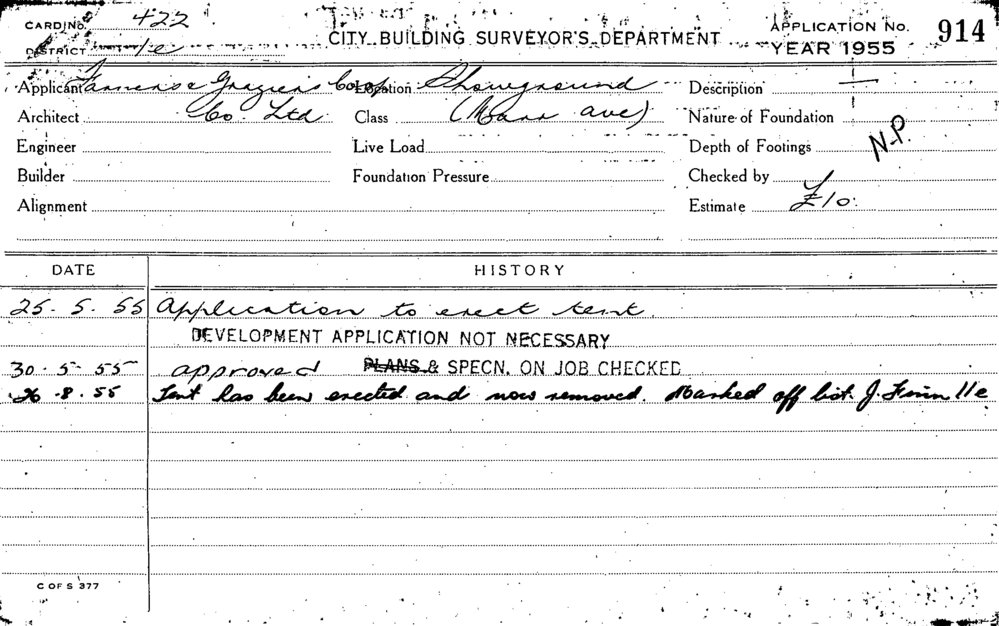 CARD No. 422
DISTRICT 11e
CITY BUILDING SURVEYOR'S DEPARTMENT
APPLICATION No. 914
YEAR 1955
Applicant Farmers & Graziers Coop. Location Showground Description
Architect Co. Ltd Class (      ave) Nature of Foundation
Engineer Live Load Depth of Footings N.P.
Builder Foundation Pressure Checked by
Alignment Estimate £10.
DATE HISTORY
25. 5. 55 Application to erect tent.
DEVELOPMENT APPLICATION NOT NECESSARY
30. 5. 55 approved PLANS & SPECN. ON JOB CHECKED
26. 8. 55 Tent has been erected and now removed. Marked off list. J. Finn 11e
C OF S 377